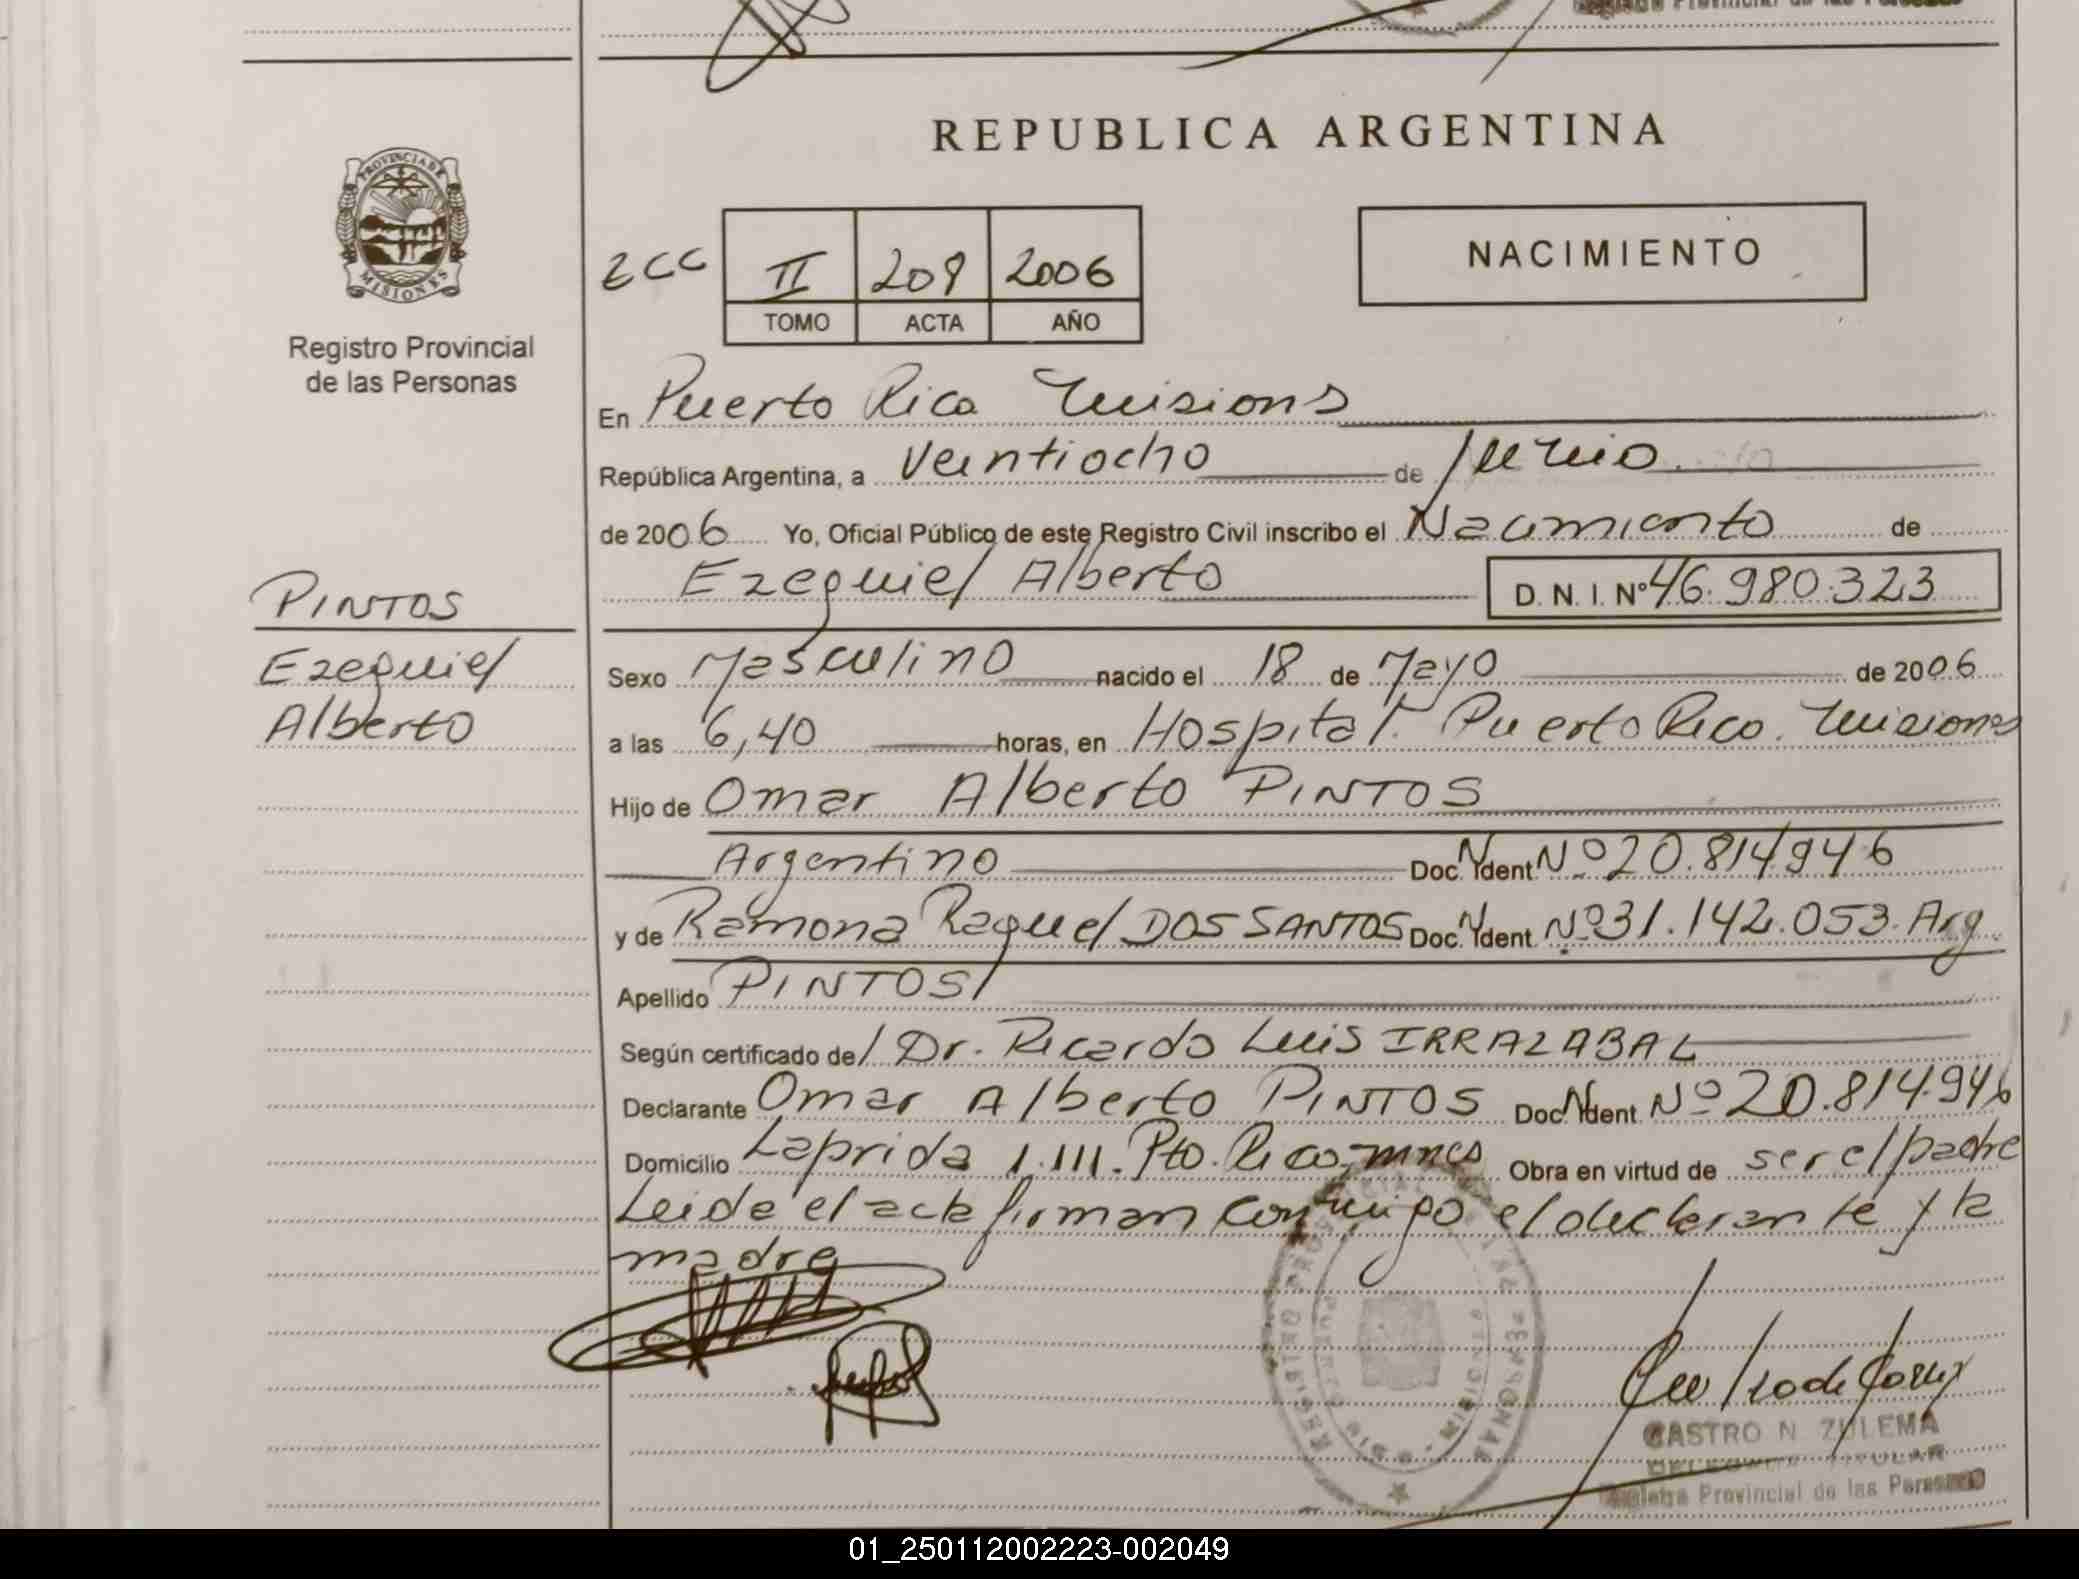 Registro Provincial de las Personas
REPUBLICA ARGENTINA
PROVINCIA DE
MISIONES
Registro Provincial
de las Personas
ECC II 209 2006
TOMO ACTA AÑO
NACIMIENTO
En Puerto Rica Misions
República Argentina, a Veintiocho de junio.
de 2006 Yo, Oficial Público de este Registro Civil inscribo el Nacimiento de
Ezequiel Alberto D. N. I. Nº 46.980.323
PINTOS
Ezequiel
Alberto
Sexo Masculino nacido el 18 de Mayo de 2006
a las 6,40 horas, en Hospital. Puerto Rico. Misiones
Hijo de Omar Alberto PINTOS
Argentino Doc. N. Ydent Nº 20.814.946
y de Ramona Raquel DOS SANTOS Doc. N. Ydent. Nº 31.142.053. Arg
Apellido PINTOS/
Según certificado de/ Dr. Ricardo Luis IRRAZABAL
Declarante Omar Alberto PINTOS Doc. N. Ydent. Nº 20.814.946
Domicilio Laprida 1.111. Pto. Rico, mnes Obra en virtud de ser el padre
Leida el acta firman conmigo el declarante y la
madre
CASTRO N ZULEMA
DELEGADA TITULAR
Registro Provincial de las Personas
01_250112002223-002049